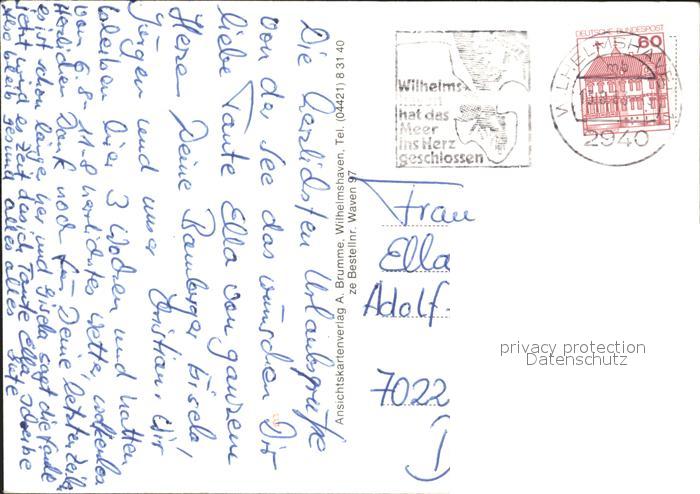 Die herzlichsten Urlaubsgrüße
von der See das wünschen Dir
liebe Tante Ella von ganzem
Herzen Deine Bamberger Gisela,
Jürgen und unser Christian. Wir
bleiben hier 3 Wochen und hatten
vom 6.8 - 11.8 herrlichstes Wetter, wolkenlos
Herzlichen Dank noch für Deine letzten Zeilen
es ist schon lange her und Gisela sagt die Tante
jetzt wird es Zeit das ich Tante Ella schreibe
Also bleib gesund alles alles Gute
Ansichtskartenverlag A. Brumme, Wilhelmshaven, Tel. (04421) 8 31 40
ze Bestellnr. Waven 97
Wilhelms-
hat das
Meer
ins Herz
geschlossen
WILHELMSHAVEN
mb
2940
DEUTSCHE BUNDESPOST
60
Frau
Ella
Adolf-
7022
privacy protection
Datenschutz